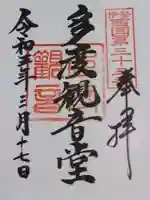 奉拝
西国第三十
多渡観音堂
令和五年三月十七日